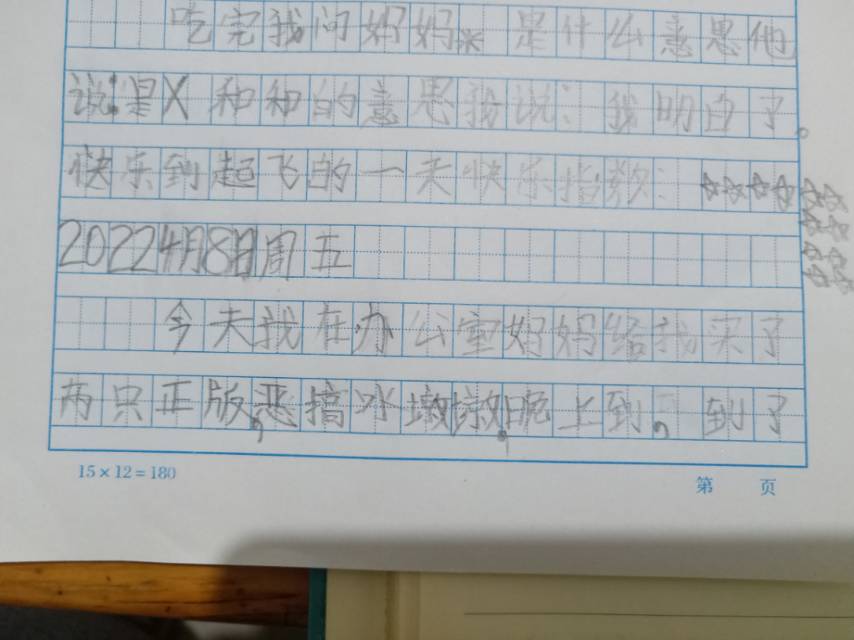 吃完我问妈妈※是什么意思他
说:是X和和的意思我说:我明白了。
快乐到起飞的一天快乐指数:☆☆☆☆☆☆☆☆☆☆
20224月8日周五
今天我在办公室妈妈给我买了
两只正版,恶搞冰墩墩,晚上到,到了
15×12=180
第 页